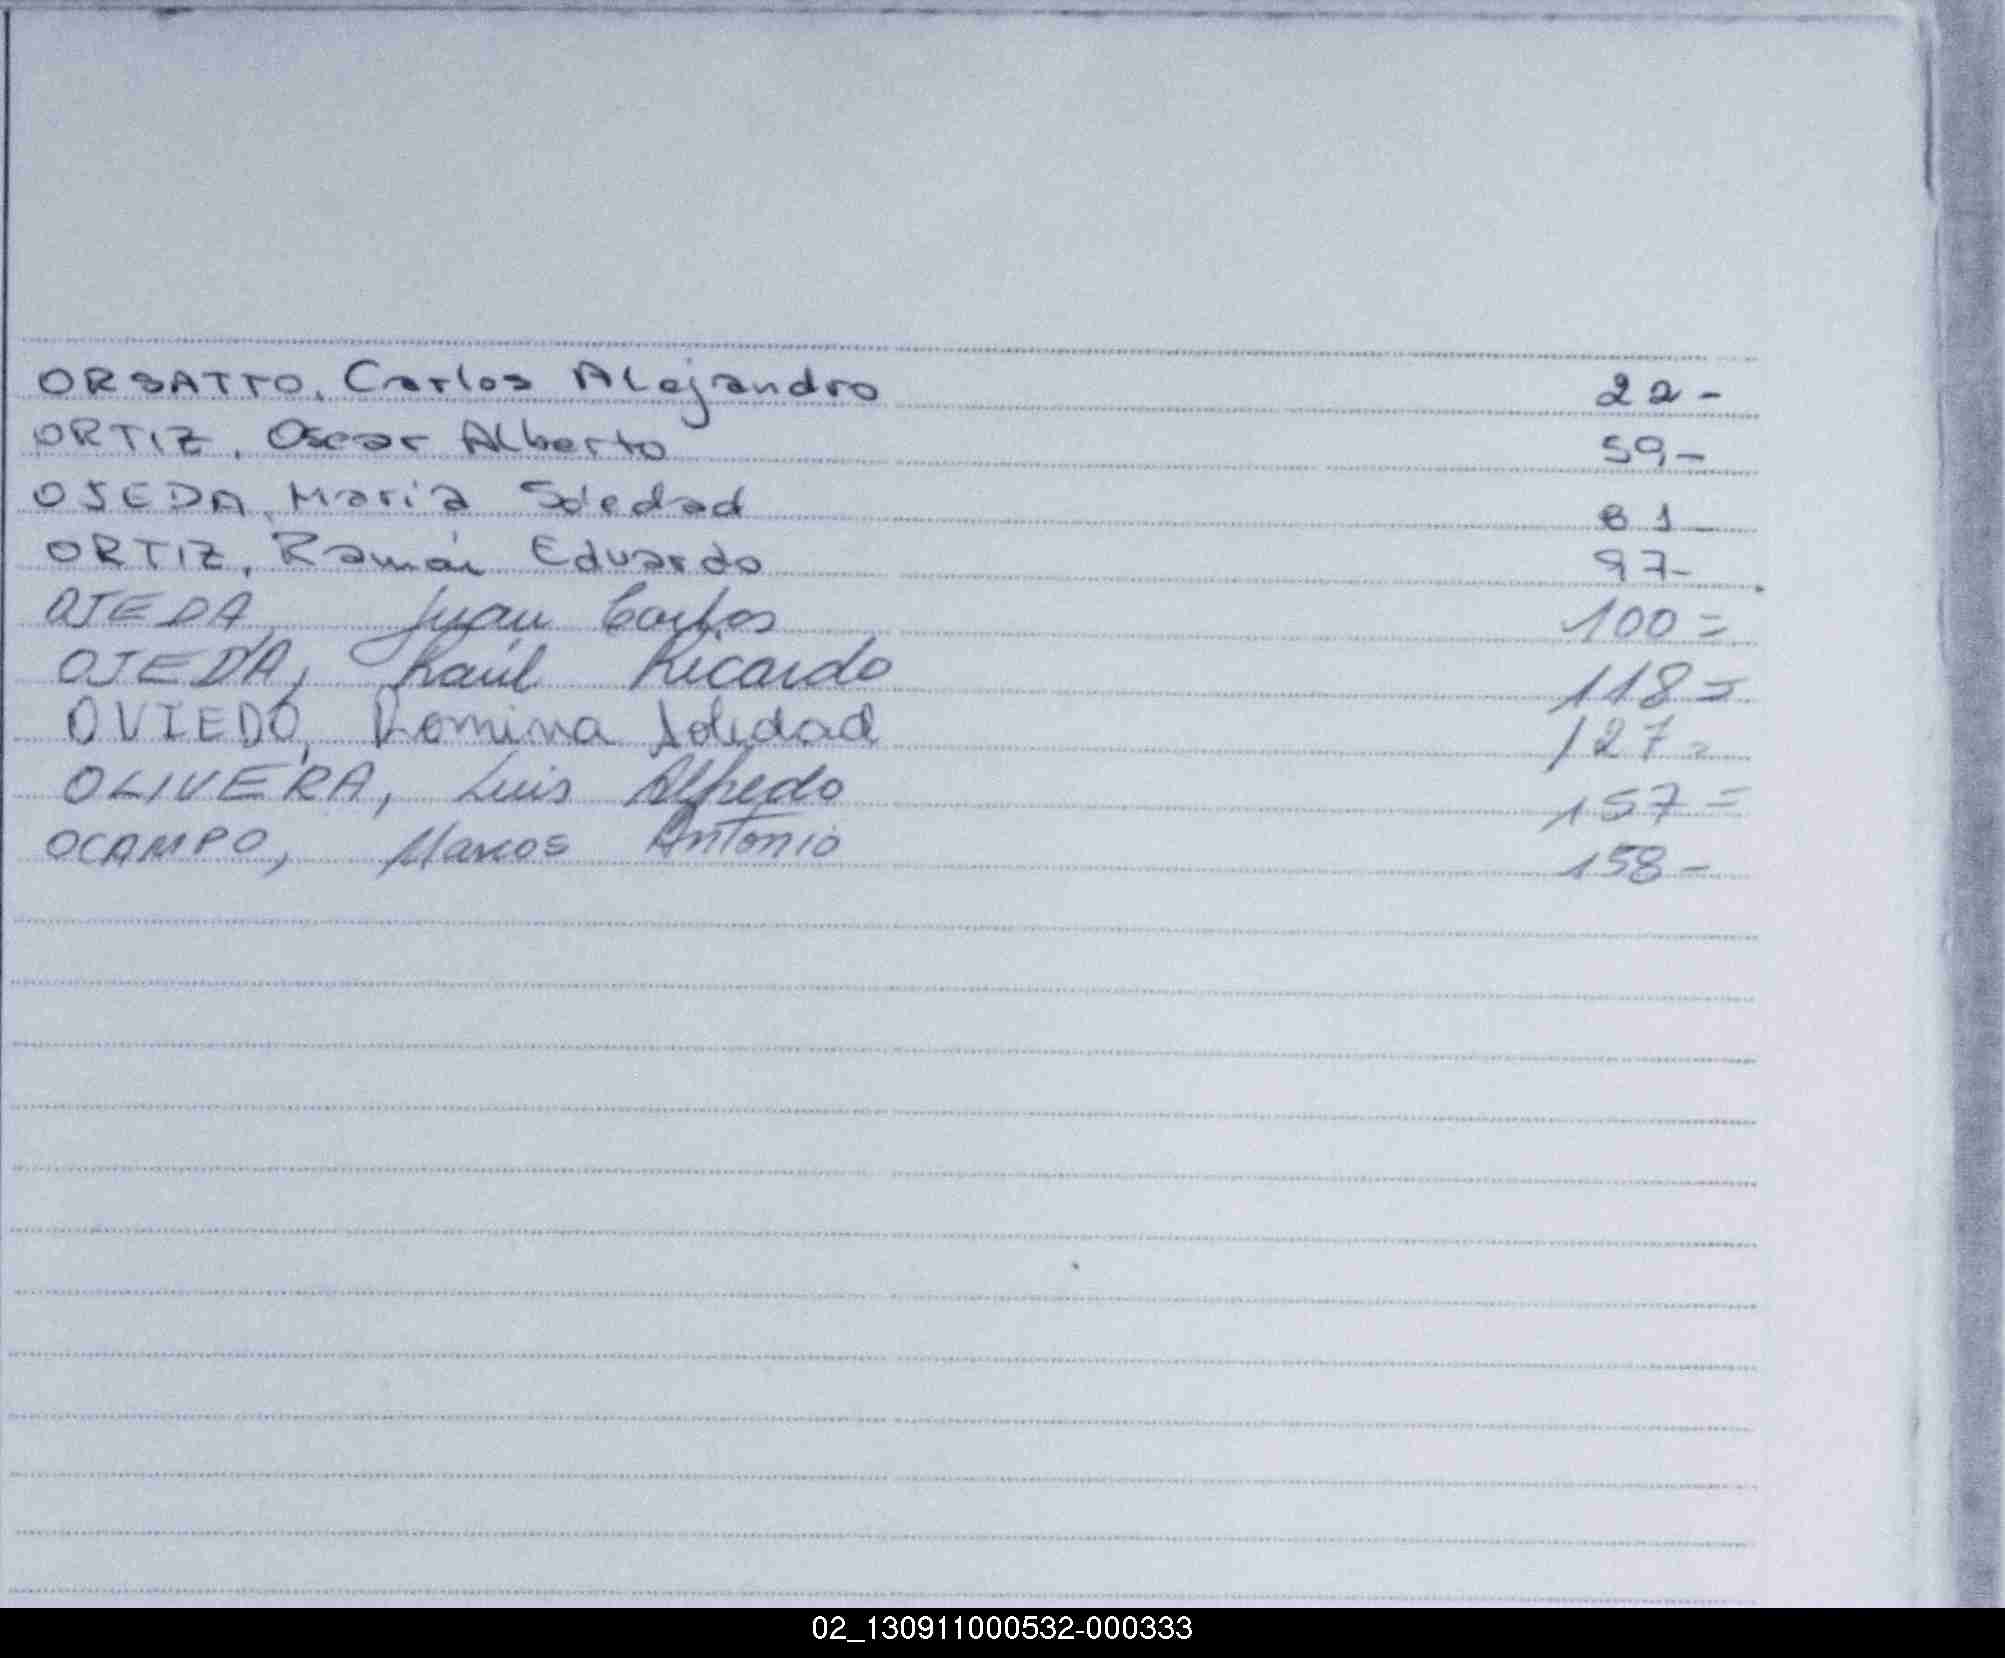 ORSATTO, Carlos Alejandro 22-
ORTIZ, Oscar Alberto 59-
OJEDA, María Soledad 81-
ORTIZ, Ramón Eduardo 97-
OJEDA, Juan Carlos 100=
OJEDA, Raúl Ricardo 118=
OVIEDO, Romina Soledad 127=
OLIVERA, Luis Alfredo 157=
OCAMPO, Marcos Antonio 158-
02_130911000532-000333